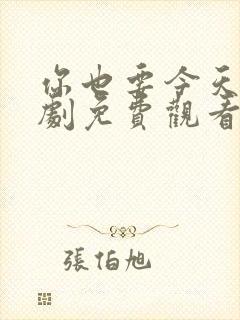 你也要今天
劇免費觀看
張伯旭